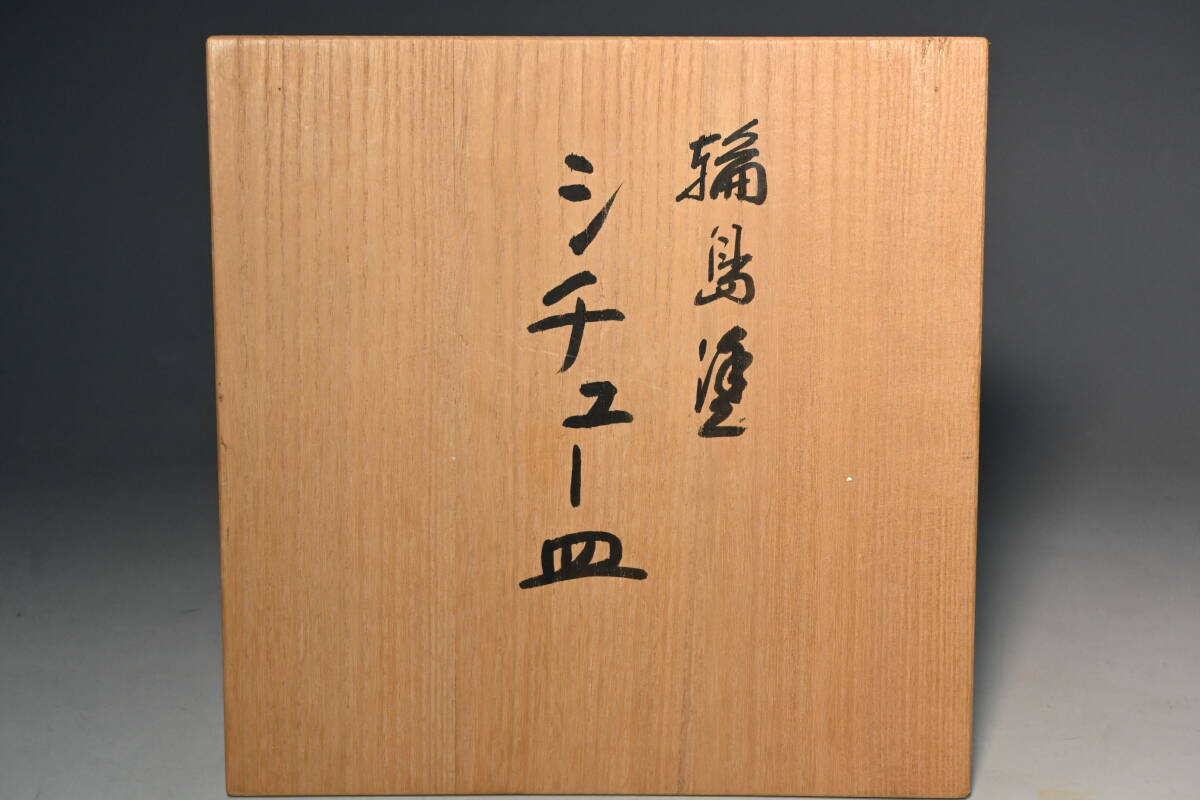 輪島塗
シチュー皿